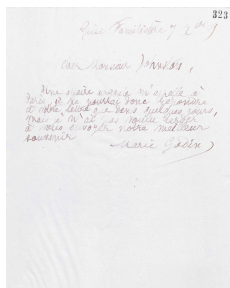 323
Guise Familistère 7 2bre
Cher Monsieur Johnson,
Une affaire urgente m'appelle à
Paris et je ne pourrai donc répondre
à votre lettre que dans quelques jours,
mais je n'ai pas voulu tarder
à vous envoyer notre meilleur
souvenir
Marie Godin